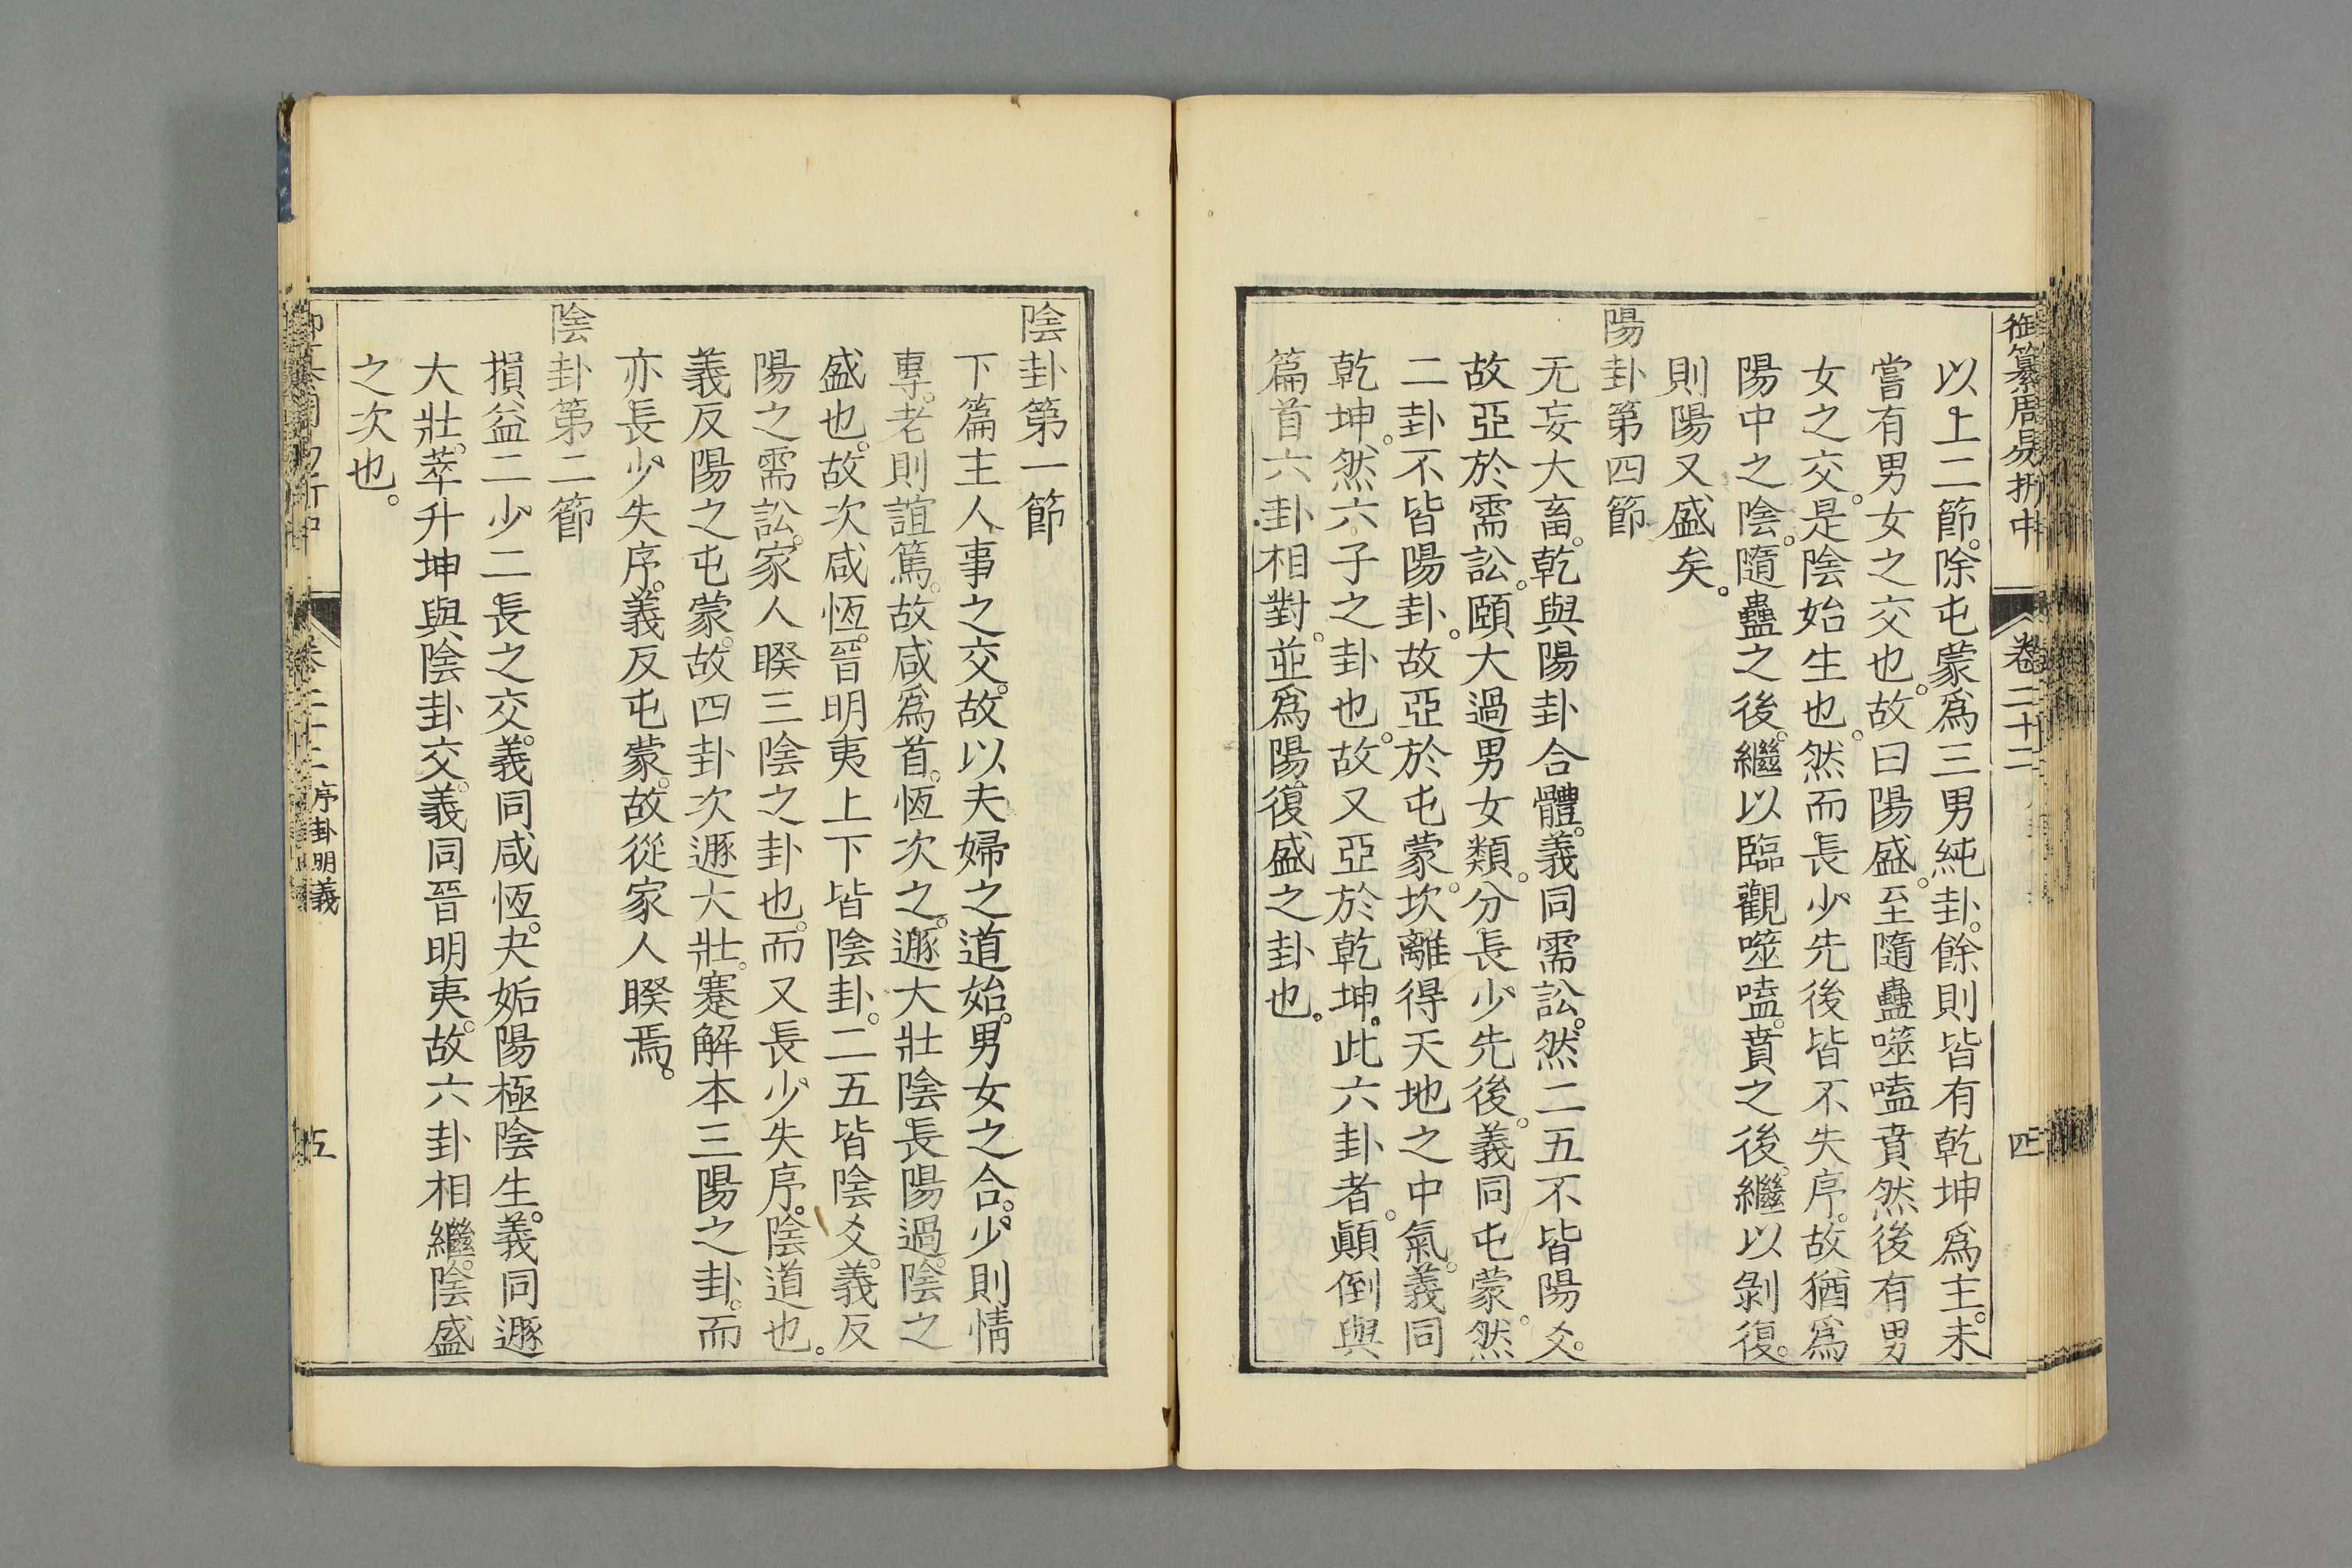 御纂周易折中
卷二十二
四
以上二節。除屯蒙爲三男純卦。餘則皆有乾坤爲主。未
嘗有男女之交也。故曰陽盛。至隨蠱噬嗑賁然後有男
女之交。是陰始生也。然而長少先後皆不失序。故猶爲
陽中之陰。隨蠱之後。繼以臨觀噬嗑。賁之後。繼以剝復。
則陽又盛矣。
陽卦第四節
无妄大畜。乾與陽卦合體。義同需訟。然二五不皆陽爻。
故亞於需訟。頤大過男女類。分長少先後。義同屯蒙。然
二卦不皆陽卦。故亞於屯蒙。坎離得天地之中氣。義同
乾坤。然六子之卦也。故又亞於乾坤。此六卦者。顚倒與
篇首六卦相對。並爲陽復盛之卦也。
陰卦第一節
下篇主人事之交。故以夫婦之道始。男女之合。少則情
專。老則誼篤。故咸爲首。恆次之。遯大壯陰長陽過。陰之
盛也。故次咸恆。晉明夷上下皆陰卦。二五皆陰爻。義反
陽之需訟。家人睽三陰之卦也。而又長少失序。陰道也。
義反陽之屯蒙。故四卦次遯大壯。蹇解本三陽之卦。而
亦長少失序。義反屯蒙。故從家人睽焉。
陰卦第二節
損益二少二長之交。義同咸恆。夬姤陽極陰生。義同遯
大壯。萃升坤與陰卦交。義同晉明夷。故六卦相繼。陰盛
之次也。
卷二十二
序卦明義
五